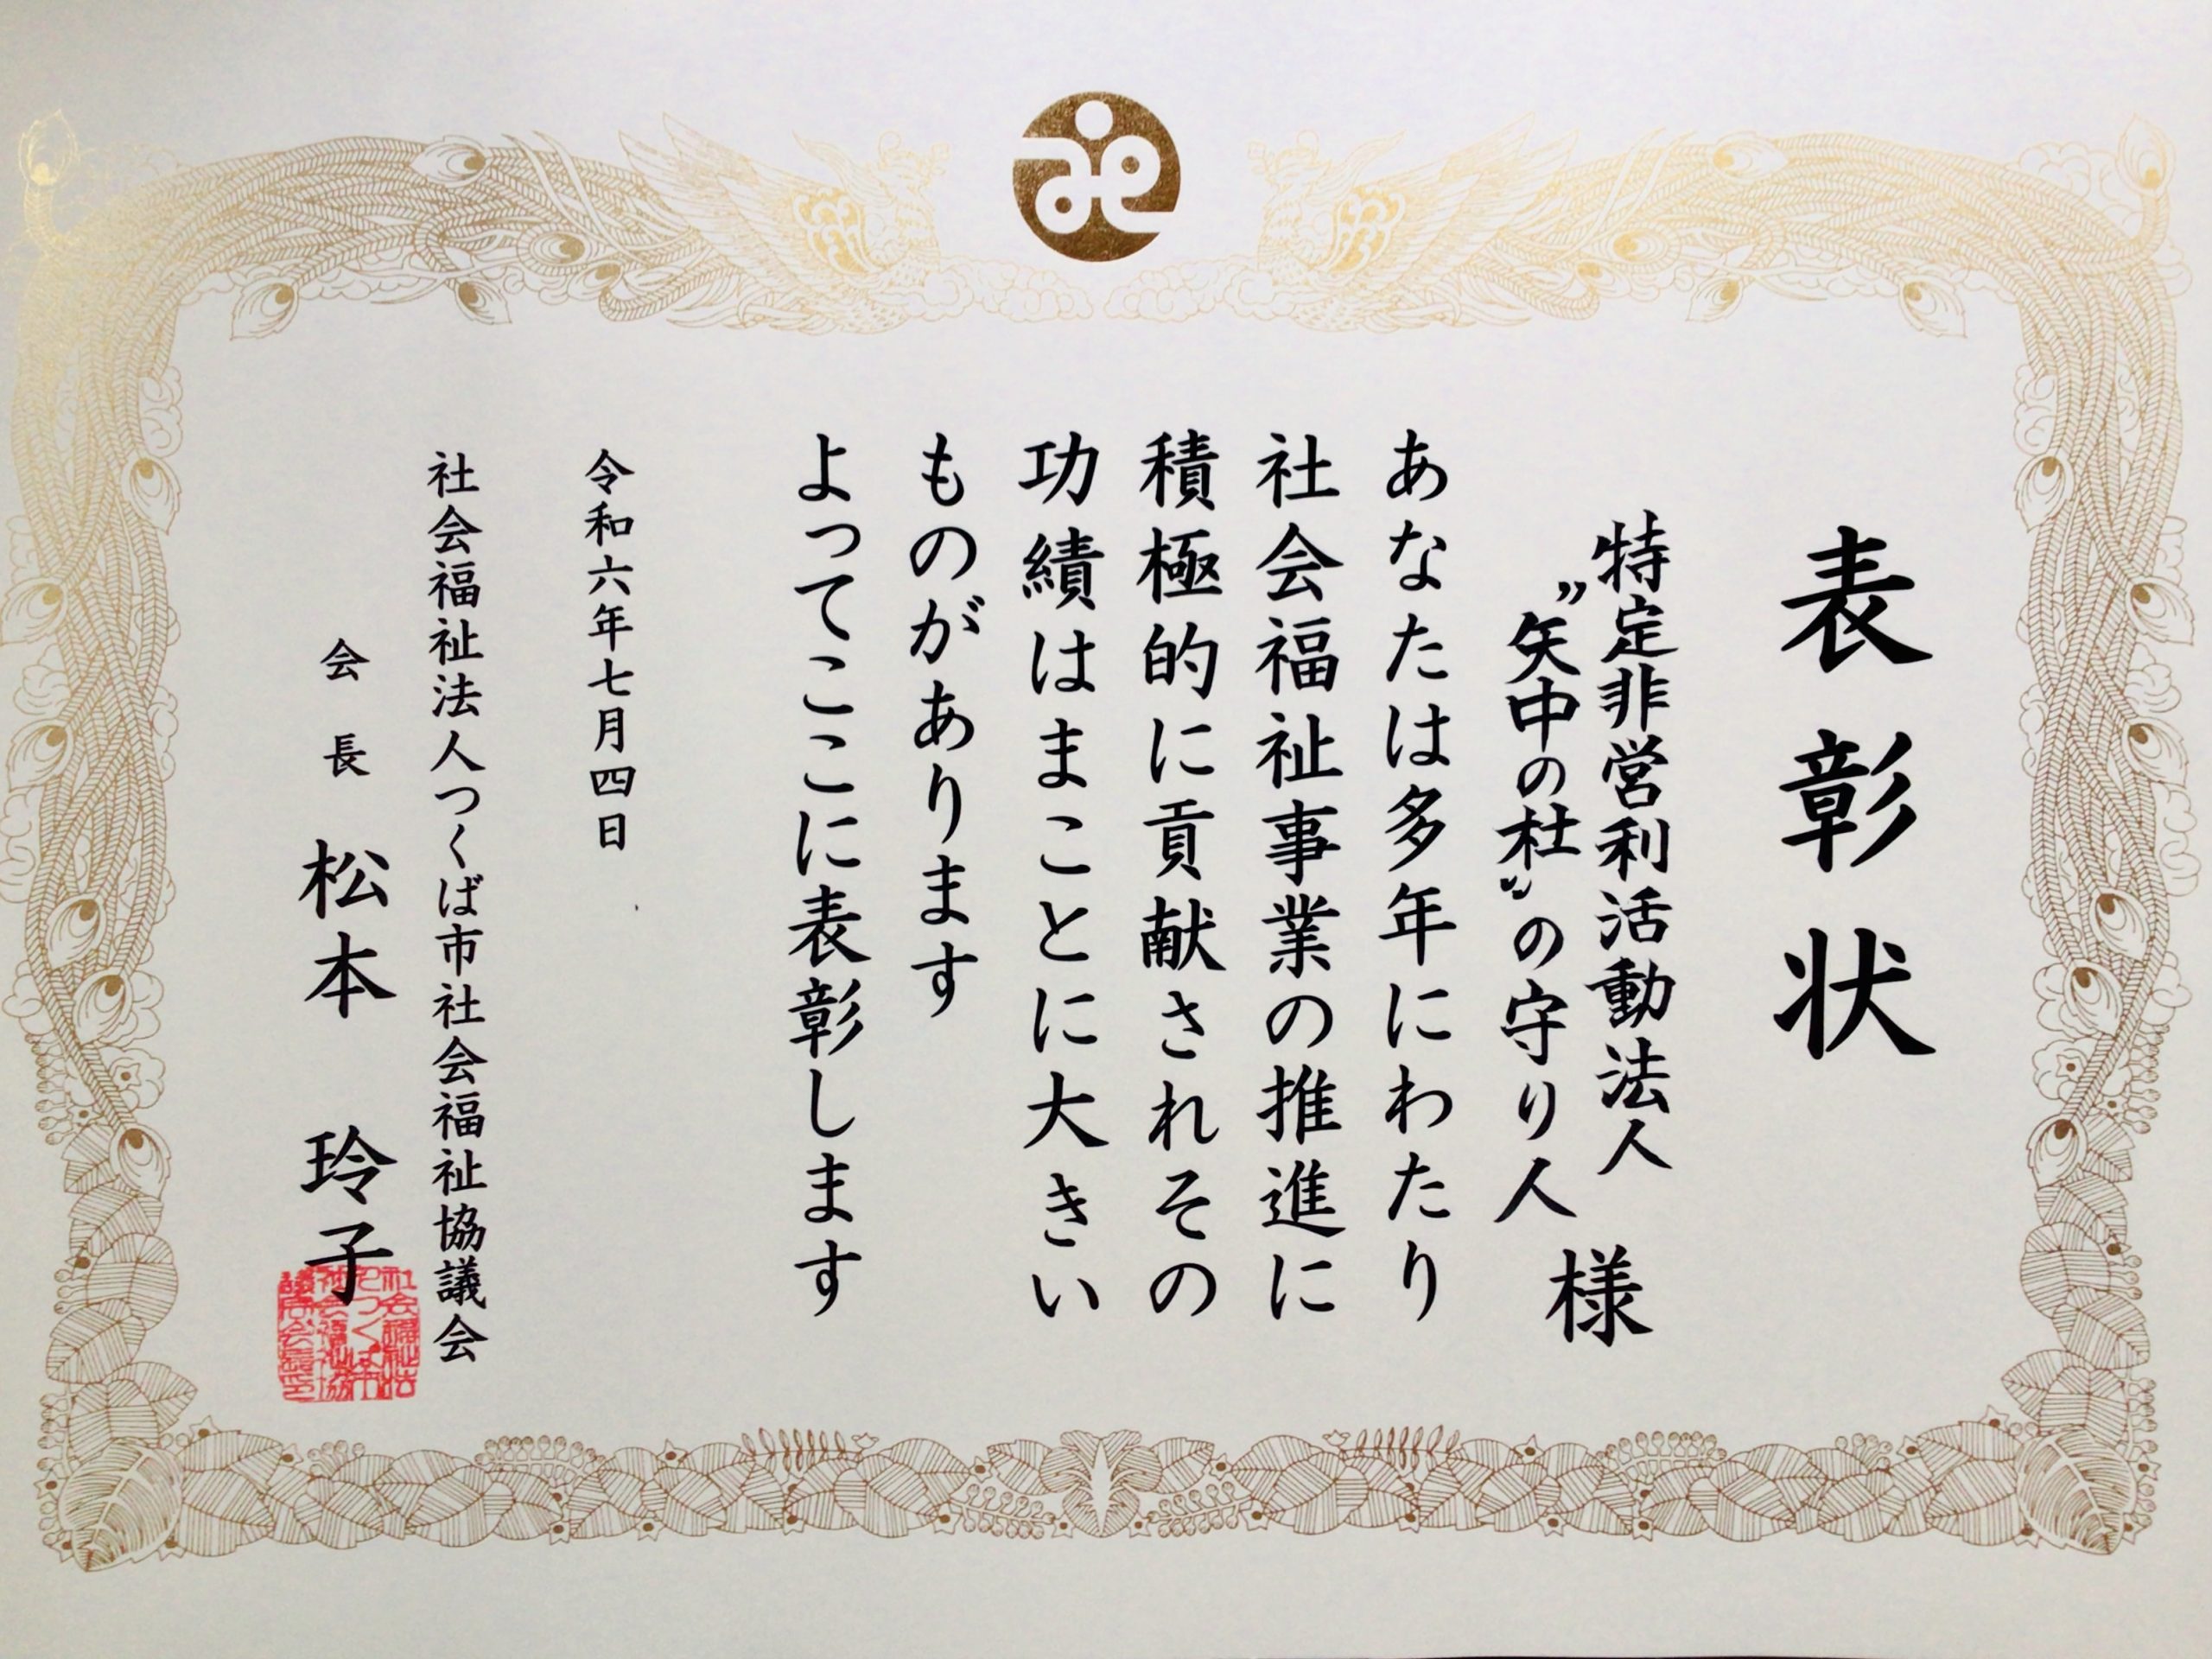 表彰状
特定非営利活動法人
〝矢中の杜〟の守り人
様
あなたは多年にわたり
社会福祉事業の推進に
積極的に貢献されその
功績はまことに大きい
ものがあります
よってここに表彰します
令和六年七月四日
社会福祉法人つくば市社会福祉協議会
会長 松本 玲子